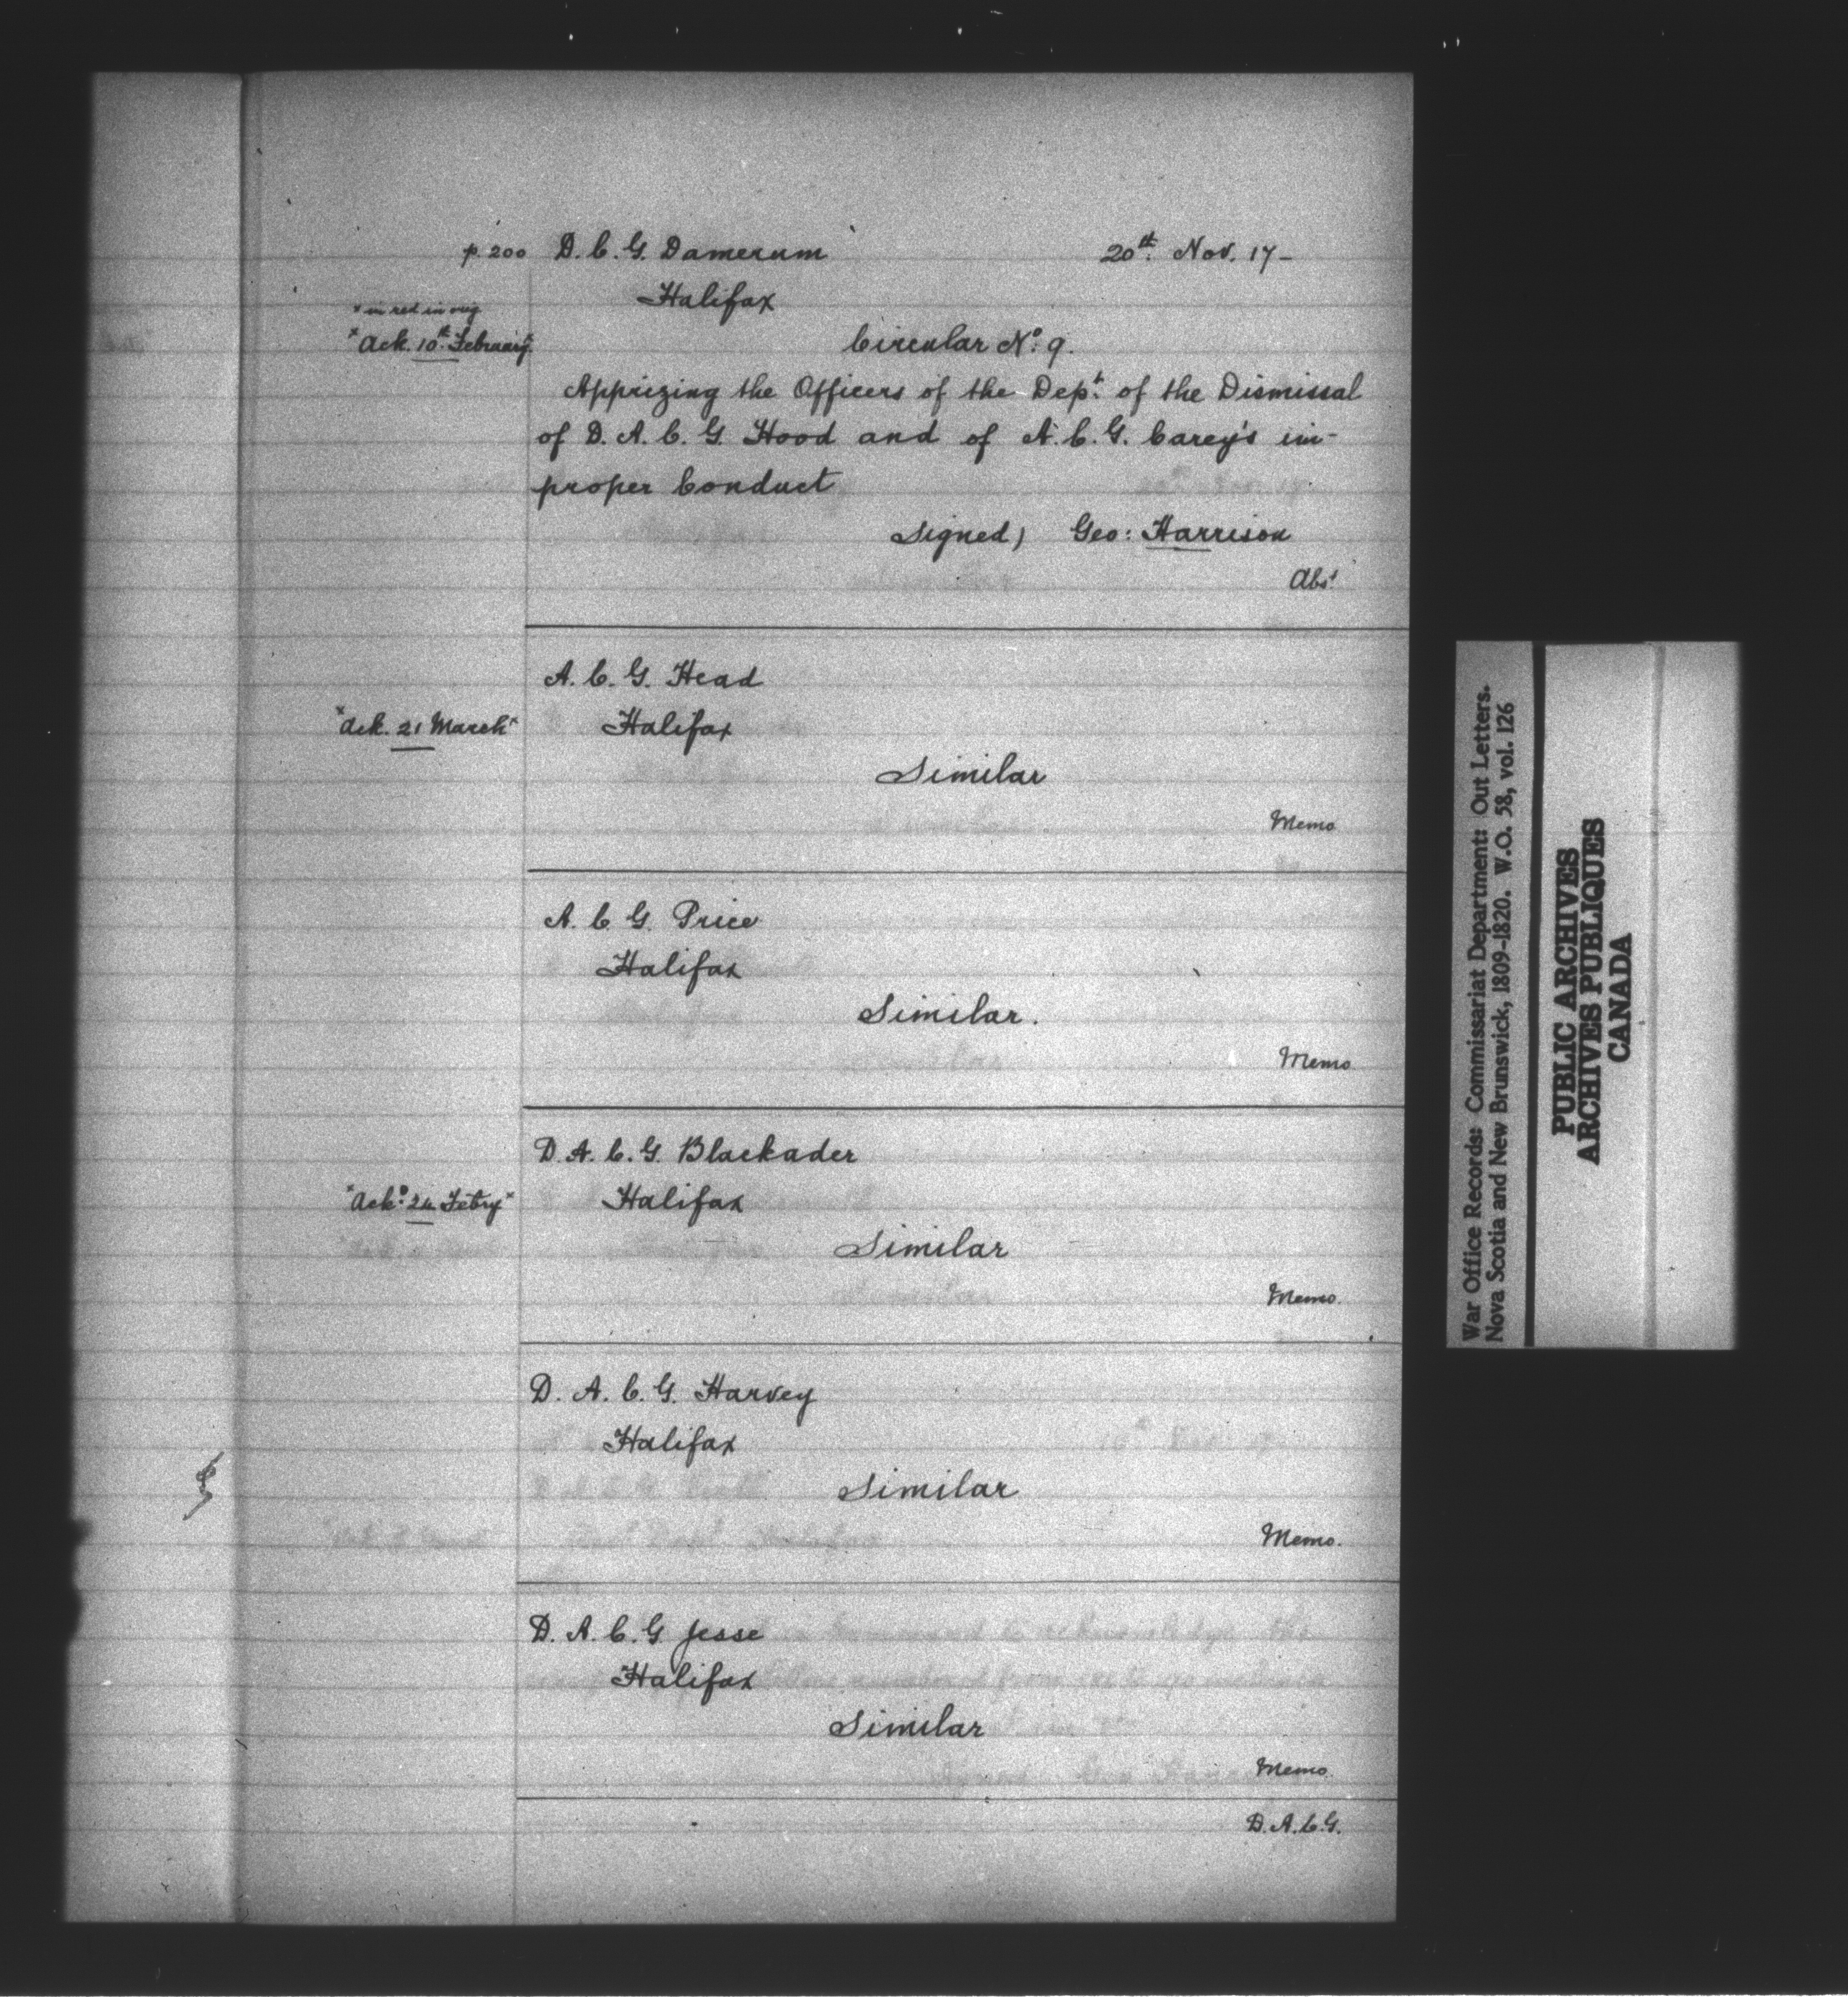 p. 200 D. C. G. Damerum 20th. Nov. 17-
Halifax
x in red in orig
"Ack. 10th. February" Circular No. 9.
Apprizing the Officers of the Dept. of the Dismissal
of D. A. C. G. Hood and of A. C. G. Carey's im-
proper Conduct
Signed) Geo: Harrison
Abst
A. C. G. Head
"Ack. 21 March" Halifax
Similar
Memo
A. C. G. Price
Halifax
Similar.
Memo
D. A. C. G. Blackader
"Ackd. 24 Febry" Halifax
Similar
Memo.
D. A. C. G. Harvey
Halifax
Similar
Memo.
D. A. C. G. Jesse
Halifax
Similar
Memo.
D. A. C. G.
War Office Records: Commissariat Department: Out Letters.
Nova Scotia and New Brunswick, 1809-1820. W.O. 58, vol. 126
PUBLIC ARCHIVES
ARCHIVES PUBLIQUES
CANADA